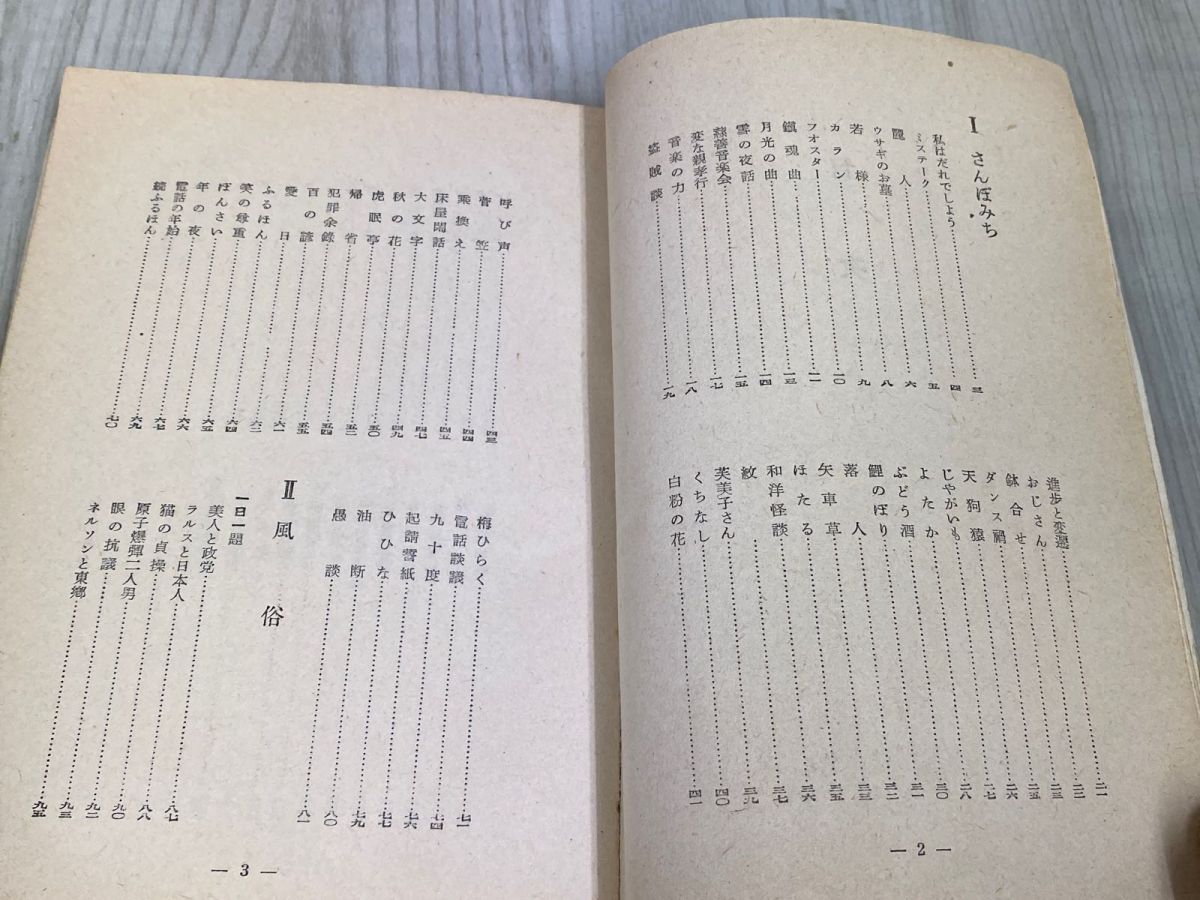 Ⅰ さんぽみち
私はだれでしよう……三
ミステーク……四
人……五
ウサギのお墓……六
若様……八
カラン……九
フオスター……一〇
鎮魂曲……一一
月光の曲……一三
雪の夜話……一四
慈善音楽会……一五
変な親孝行……一七
音楽の力……一八
盗賊談……一九
進歩と変遷……二一
おじさん……二二
鉢合せ……二三
ダンス禍……二五
天狗猿……二六
じやがいも……二七
よたか……二八
ぶどう酒……三〇
鯉のぼり……三一
落人……三二
矢車草……三三
ほたる……三五
和洋怪談……三六
紋……三七
芙美子さん……三九
くちなし……四〇
白粉の花……四一
— 2 —
呼び声……四三
菅笠……四四
乗換え……四五
床屋閑話……四七
大文字……四九
秋の花……五〇
虎眠亭……五二
帰省……五四
犯罪余録……五五
百の諺……六一
愛日……六二
ふるほん……六四
笑の尊重……六五
ぼんさい……六六
年の夜……六七
電話の年始……六九
続ふるほん……七〇
梅ひらく……七一
電話談議……七四
九十度……七六
起請誓紙……七七
ひひな……七九
油断……八〇
愚談……八一
Ⅱ 風俗
一日一題
美人と政党……八七
ラルスと日本人……八八
猫の貞操……九〇
原子爆弾二人男……九二
眼の抗議……九三
ネルソンと東郷……九五
— 3 —